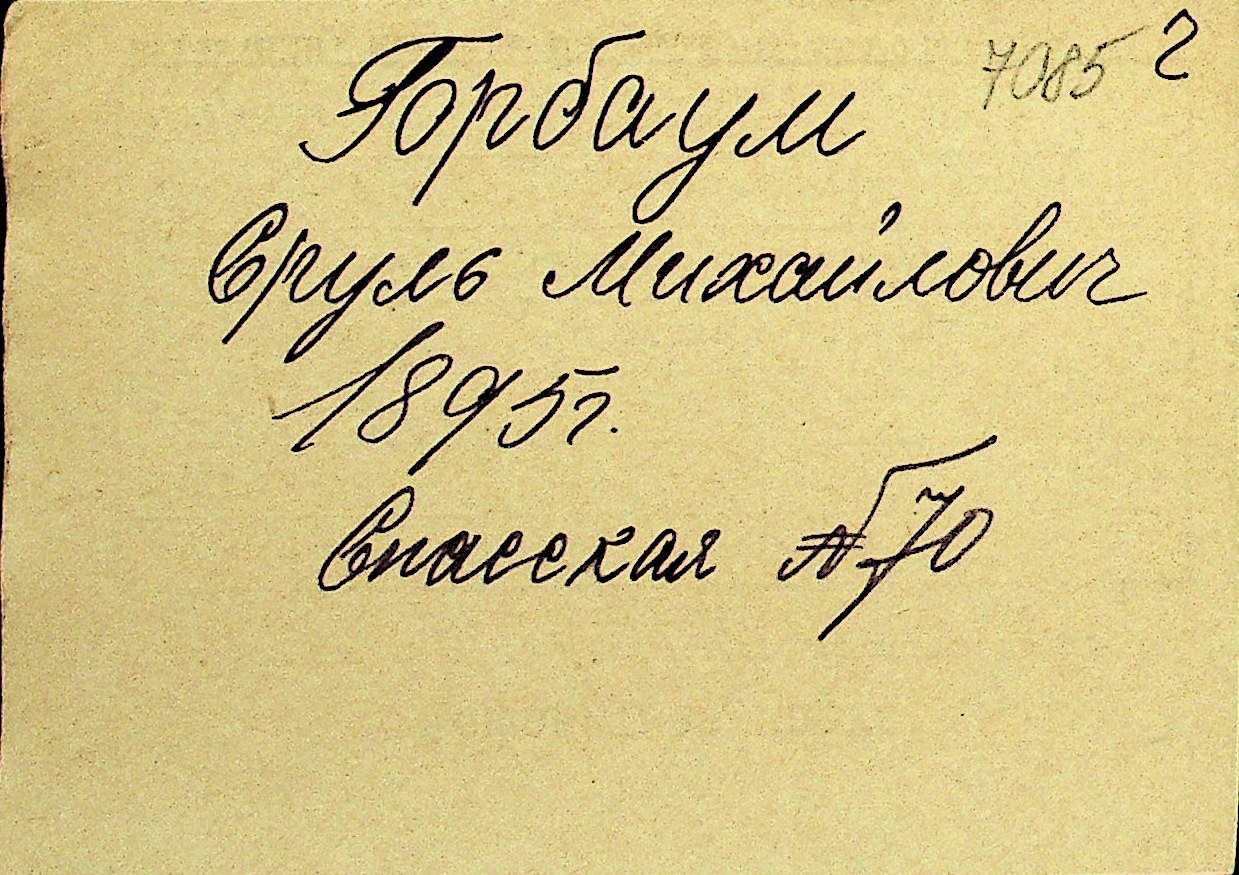 7085 г
Горбаум
Сруль Михайлович
1895г.
Спасская №70